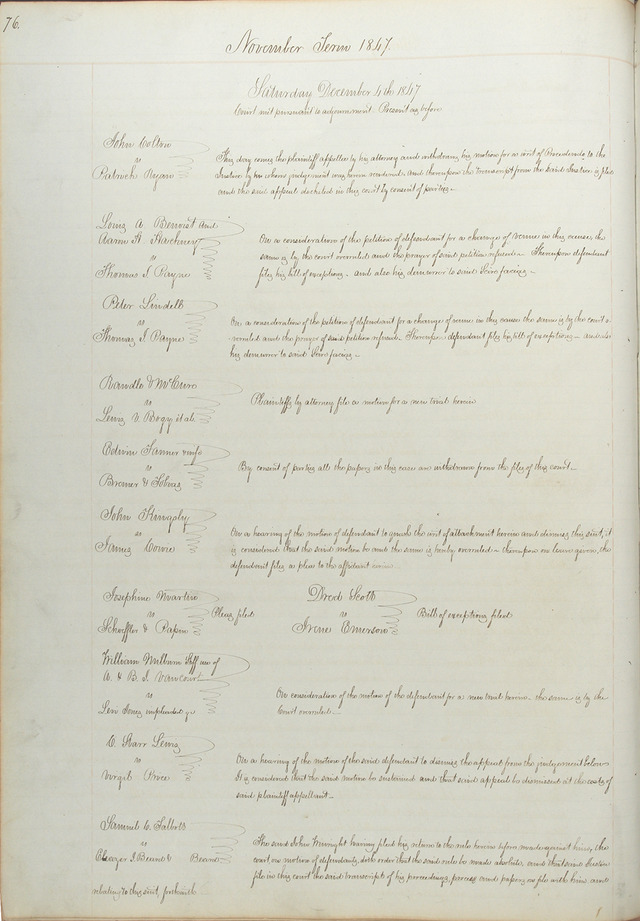 76.
November Term 1847
Saturday December 4th 1847
Court met pursuant to adjournment. Present as before
John Colton
vs
Patrick Ryan
This day comes the plaintiff appellee by his attorney and withdraws his motion for a writ of Procedendo to the
Justice by whom judgement was herein rendered and thereupon the transcript from the said Justice is filed
and the said appeal docketed in this court by consent of parties —
Louis A. Benoist and
Aaron H. Hackney
vs
Thomas J. Payne
On a consideration of the petition of defendant for a change of venue in this cause, the
same is by the court overruled and the prayer of said petition refused — Thereupon defendant
files his bill of exceptions — and also his demurrer to said Scire facias —
Peter Lindell
vs
Thomas J. Payne
On a consideration of the petition of defendant for a change of venue in this cause the same is by the court o
verruled and the prayer of said petition refused. Thereupon defendant files his bill of exceptions — and also
his demurrer to said Scire facias —
Randle & McCune
vs
Lewis V. Bogy et als
Plaintiffs by attorney file a motion for a new trial herein
Edwin Tanner & wife
vs
Bremer &
By consent of parties all the papers in this case are withdrawn from the files of this court —
John Skingsly
vs
James Cowie
On a hearing of the motion of defendant to quash the writ of attachment herein and dismiss this suit, it
is considered that the said motion be and the same is hereby overruled — thereupon on leave given, the
defendant files a plea to the affidavit herein
Josephine Martin
vs
Schoeffler & Papin
Pleas filed
Dred Scott
vs
Irene Emerson
Bill of exceptions filed
William Milburn Shff use of
A. & B. J. Vancourt
vs
Levi Jones impleaded &c
On consideration of the motion of the defendant for a new trial herein — the same is by the
Court overruled —
C. Starr Lewis
vs
Virgil Price
On a hearing of the motion of the said defendant to dismiss the appeal from the judgement below
It is considered that the said motion be sustained and that said appeal be dismissed at the costs of
said plaintiff appellant —
Samuel C. Talbott
vs
Eleazer J. Beard & Beard
The said John having filed his return to the rule herein before made against him, the
court on motion of defendants, doth order that the said rule be made absolute, and that said Justice
file in this court the said transcripts of his proceedings, process and papers on file with him and
relating to this suit, forthwith